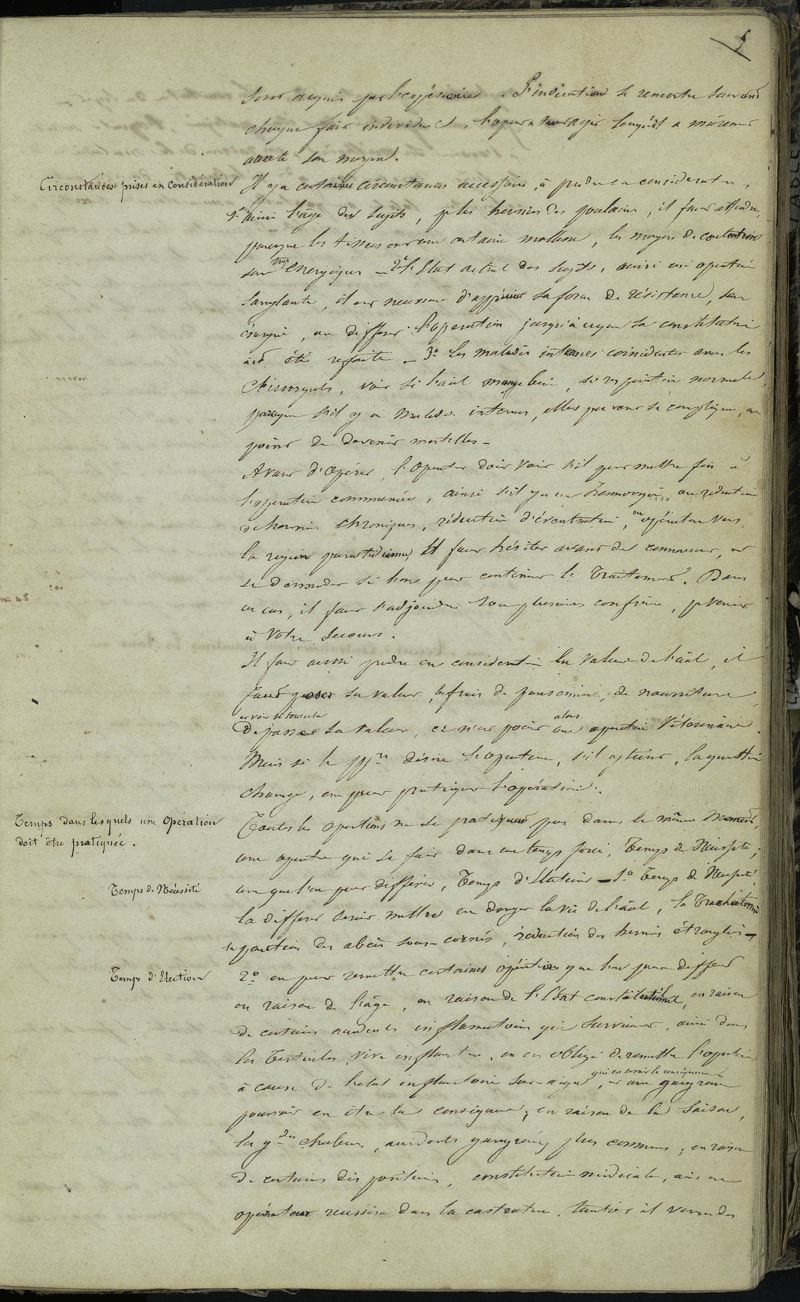 5
sont acquis par l'expérience. L'indication se rencontre souvent
chaque fait individuel, l'operateur agir lorsqu'il a murement
arreté son moyen.
Circonstances prises en considération
Il y a certaines circonstances accessoires à prendre en consideration,
1° ainsi l'age des sujets, les hernies des poulains, il faut attendre,
parceque les tissus ont une certaine mollesse, les moyens de contention
sont trop énergiques _ 2° L'Etat actuel des sujets, ainsi une opération
sanglante, il est necessaire d'apprécier sa force de résistance, son
énergie, ou differer l'operation jusqu'à ce que sa constitution
ait été refaite _ 3° Les maladies internes coincidentes avec les
Chirurgicales, voir si l'aâl mange bien, si respiration normale,
parceque s'il y a maladies internes, elles peuvent se compliquer, au
point de devenir mortelles _
Avant d'opérer, l'operateur doit voir s'il peut mettre fin à
l'operation commencée, ainsi s'il y a une hemorragie, ou reduction
de hernies chroniques, réduction d'éventration, ou opération vers
la region parotidienne, il faut hésiter avant de commencer, et
se demander si l'on peut continuer le Traitement. Dans
ce cas, il faut s'adjoindre un ou plusieurs confrères, pr venir
à votre secours.
Il faut aussi prdre en consideration la valeur de l'aâl, il
faut peser sa valeur, les frais de pansement, de nourriture
dépasser sa valeur, ce n'est point alors une operation Vétérinaire.
Mais si le pprre désire l'operation, s'il y tient, la question
change, on peut pratiquer l'opération.
Temps dans lesquels une Opération
doit être pratiquée.
Toutes les opérations ne se pratiquent pas dans le même moment,
une operation qui se fait dans un temps forcé, Temps de Nécessité;
une que l'on peut différer, Temps d'Election _ 1° Temps de Nécessité
Temps de Nécéssité
la differer serait mettre en danger la vie de l'aâl, la Trachéotomie
la ponction des abcès sous-cornés, réduction des hernies étranglées _
Temps d'Election
2° on peut remettre certaines opérations que l'on peut differer
en raison de l'age, en raison de l'Etat constitutionnel, en raison
de certains accidents inflammatoires qui surviennent, ainsi dans
les Testicules, vive inflamtion, on est obligé de remettre l'operation
à cause de l'etat inflamatoire sur-aigu, et une gangrène
pourrait en être la conséquence; en raison de la Saison,
les gdes chaleurs, accidents gangréneux plus communs; en raison
de certaines dispositions, constitution médicale, ainsi un
opérateur reussira dans la castration, tantôt il verra des